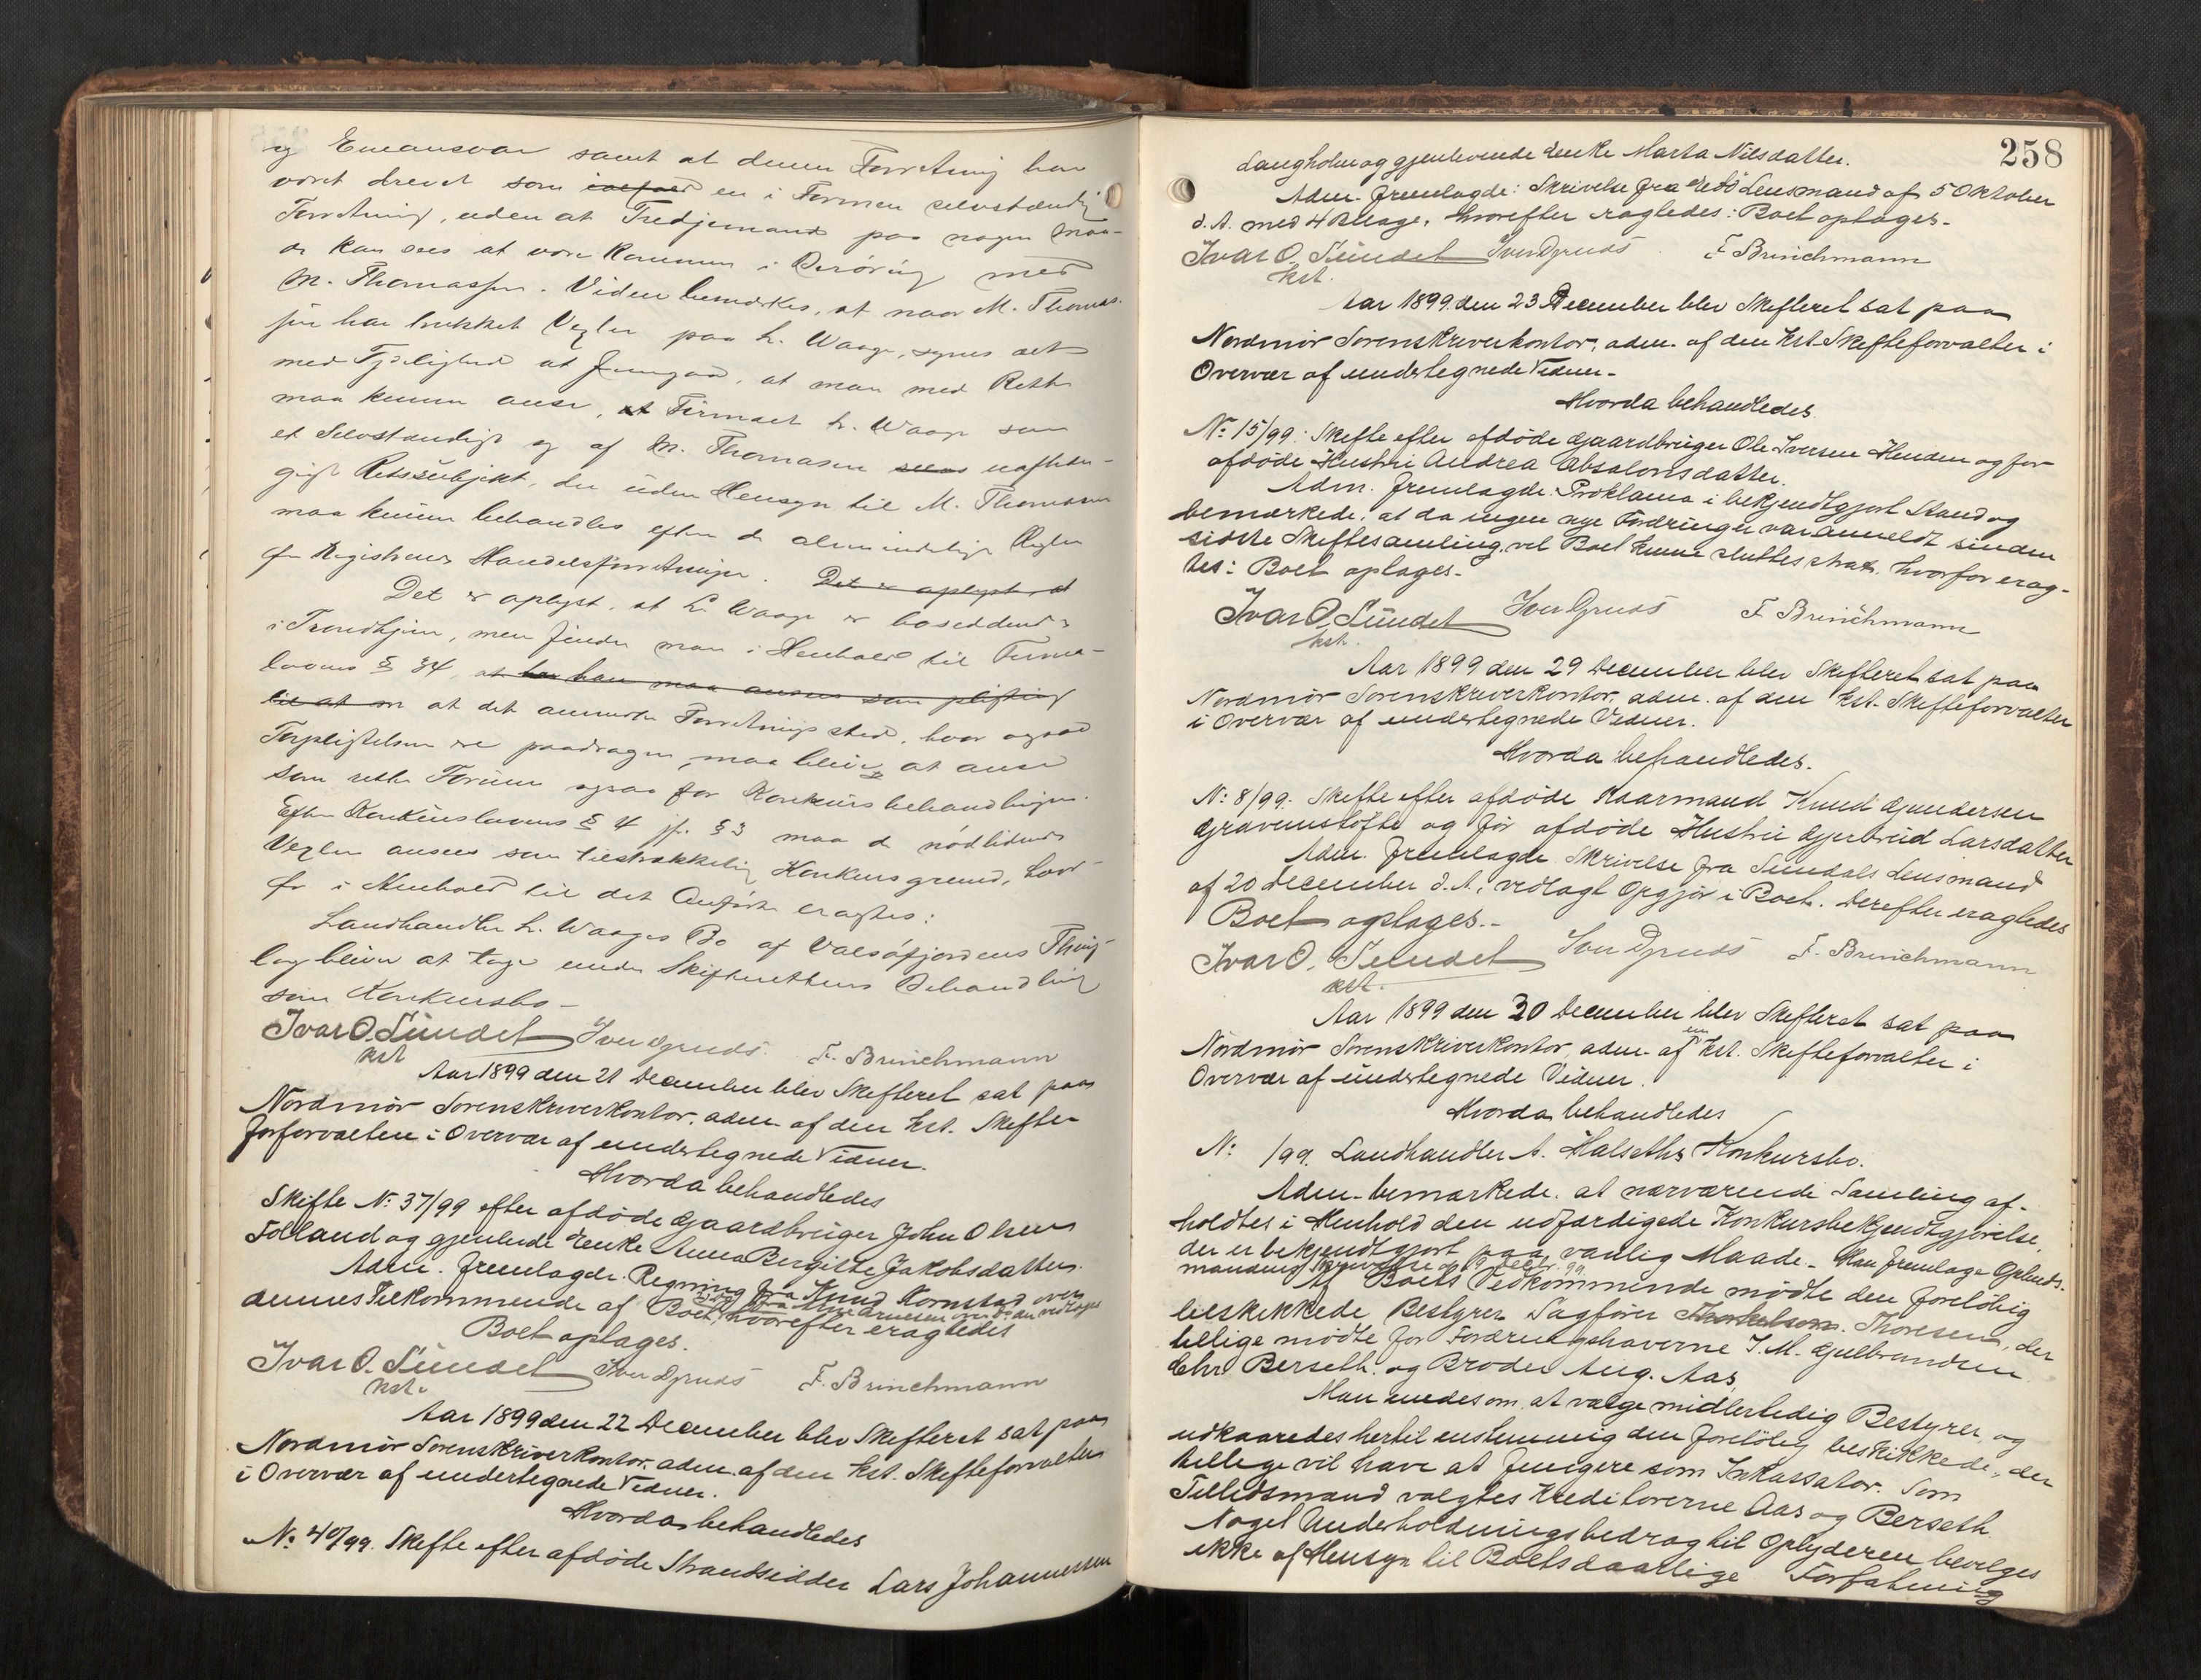 og Eneansvar samt at denne Forretning har
været drevet som en i Formen selvstændig
Forretning, uden at Tredjemand paa nogen Maa-
de kan sees at være kommen i Berøring med
M. Thomassen. Videre bemærkes, at naar M. Thomas-
sen har trukket Vexler paa L. Waage, synes det
med Tydelighed at fremgaa, at man med Rette
maa kunne anse, at Firmaet L. Waage som
et Selvstændigt og af M. Thomasen uafhæn-
gigt Retssubjekt, der uden Hensyn til M. Thomasen
maa kunne behandles efter de almindelige Regler
for Registrerede Handelsforretninger. Det er oplyst, at
Det er oplyst, at L. Waage er bosiddende
i Trondhjem, men finder man i Henhold til Firma-
lovens § 34, at han maa ansees som pligtig
til at at det anmeldte Forretningssted, hvor ogsaa
Forpligtelsen er paadragen, maa blive at anse
som rette Forum ogsaa for Konkursbehandlingen.
Efter Konkurslovens § 4 jf. § 3 maa de nødlidende
Vexler ansees som tilstrækkelig Konkursgrund, hvor-
for i Henhold til det Anførte eragtes:
Landhandler L. Waages Bo af Valsøfjordens Thing-
lag bliver at tage under Skifterettens Behandling
som Konkursbo.
Ivar O. Sundet Iver Gruds F. Brinchmann
kst
Aar 1899 den 21 December blev Skifteret sat paa
Nordmør Sorenskriverkontor, adm. af den kst. Skifte-
forforvalter i Overvær af undertegnede Vidner.
Hvorda behandledes
Skifte No 37/99 efter afdøde Gaardbruger John Olsen
Folland og gjenlevde Enke Anna Bergitte Jakobsdatter.
Adm. fremlagde Regning fra Knud Kornstad over
dennes Tilkommende af Boet, hvorefter eragtedes
Boet optages.
Ivar O. Sundet Iver Gruds F. Brinchmann
kst.
Aar 1899 den 22 December blev Skifteret sat paa
Nordmør Sorenskriverkontor, adm. af den kst. Skifteforvalter
i Overvær af undertegnede Vidner.
Hvorda behandledes
No 40/99. Skifte efter afdøde Strandsidder Lars Johannessen
258
Langholm og gjenlevende Enke Marta Nilsdatter.
Adm. fremlagde: Skrivelse fra Lensmand af 5 Oktober
d. A. med 4 Bilage, hvorefter eragtedes: Boet optages.
Ivar O. Sundet Iver Gruds F. Brinchmann
kst.
Aar 1899 den 23 December blev Skifteret sat paa
Nordmør Sorenskriverkontor, adm. af den kst. Skifteforvalter i
Overvær af undertegnede Vidner.
Hvorda behandledes
No 15/99: Skifte efter afdøde Gaardbruger Ole Iversen Henden og før
afdøde Hustru Andrea Absalonsdatter.
Adm. fremlagde: Proklama i bekjendtgjort Stand og
bemærkede, at da ingen nye Fordringer var anmeldt siden
sidste Skiftesamling, vil Boet kunne sluttes strax, hvorfor erag-
tes: Boet optages.
Ivar O. Sundet Iver Gruds F. Brinchmann
kst.
Aar 1899 den 29 December blev Skifteret sat paa
Nordmør Sorenskriverkontor, adm. af den kst. Skifteforvalter
i Overvær af undertegnede Vidner.
Hvorda behandledes.
No 8/99. Skifte efter afdøde Kaarmand Knud Gundersen
Gravemstøfte og før afdøde Hustru Gjertrud Larsdatter
Adm. fremlagde Skrivelse fra Sundals Lensmand
af 20 December d. A., vedlagt Opgjør i Boet. Derefter eragtedes
Boet optages.-
Ivar O. Sundet Iver Gruds F. Brinchmann
kst.
Aar 1899 den 30 December blev Skifteret sat paa
Nordmør Sorenskriverkontor, adm. af den kst. Skifteforvalter i
Overvær af undertegnede Vidner.
Hvorda behandledes
No /99. Landhandler A. Halseths Konkursbo.
Adm. bemærkede, at nærværende Samling af-
holdtes i Henhold den udfærdigede Konkursbekjendtgjørelse,
der er bekjendtgjort paa vanlig Maade. Han fremlage Opbuds-
mandens Skrivelse af 19 Decbr. 99.
Paa Boets Vedkommende mødte den foreløbig
beskikkede Bestyrer Sagfører Thoresen, der
tillige mødte for Fordringshaverne J. M. Gulbrandsen
Chr. Berseth og Brødr Aug. Aas.
Man enedes om at vælge midlertidig Bestyrer, og
udkaaredes hertil enstemmig den foreløbig beskikkede, der
tillige vil have at fungere som Inkassator. Som
Tillidsmænd valgtes Kreditorerne Aas og Berseth.
Noget Underholdningsbedrag til Opbyderen bevilges
ikke af Hensyn til Boets daarlige Forfatning